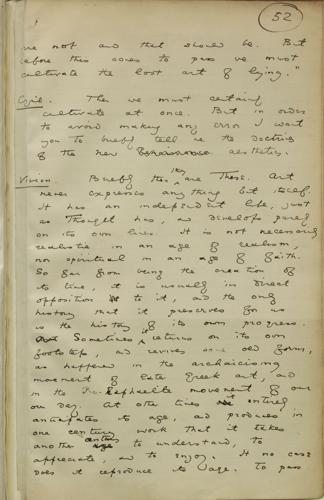 52
are not and that should be. But
before this comes to pass we must
cultivate the lost art of lying."
Cyril. Then we must certainly
cultivate at once. But in order
to avoid making any error I want
you to briefly tell me the doctrines
of the new aesthetics.
Vivian. Briefly then they are These. Art
never expresses anything but itself.
It has an independent life, just
as Thought has, and develops purely
on its own lines. It is not necessarily
realistic in an age of realism,
nor spiritual in an age of faith.
So far from being the creation of
its time, it is usually in direct
opposition to it, and the only
history that it preserves for us
is the history of its own progress.
Sometimes it returns on its own
footsteps, and revives some old form,
as happened in the archaicising
movement of late Greek art, and
in the Pre-Raphaelite movement of our
own day. At other times it entirely
anticipates its age, and produces in
one century work that it takes
another century to understand, to
appreciate, and to enjoy. In no case
does it reproduce its age. To pass